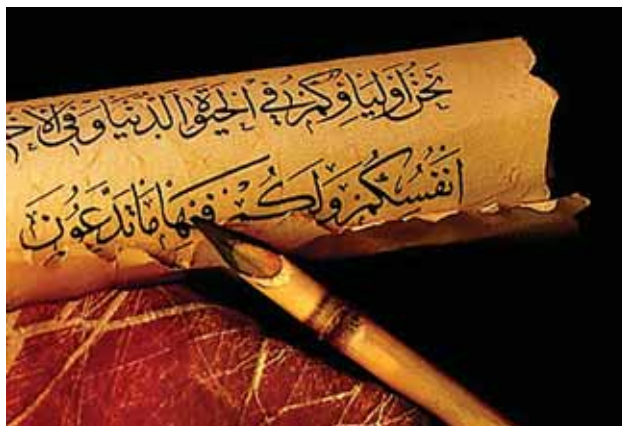 نَحْنُ اَوْلِيَاؤُكُمْ فِي الْحَيٰوةِ الدُّنْيَا وَفِي الْاٰخِ
اَنْفُسُكُمْ وَلَكُمْ فِيْهَا مَا تَدَّعُوْنَ